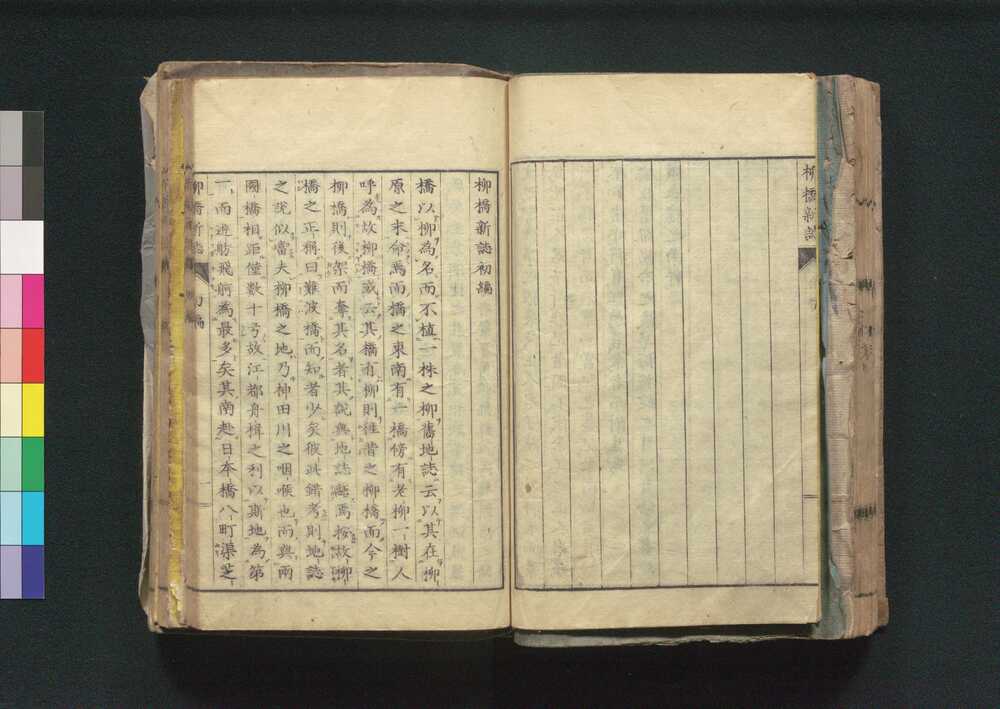 柳橋新誌
柳橋新誌初編
橋以柳為名而不植一株之柳舊地誌云以其在柳
原之末命焉而橋之東南有一橋傍有老柳一樹人
呼為故柳橋或云其橋有柳則往昔之柳橋而今之
柳橋則後架而奪其名者其說與地誌齟焉按故柳
橋之正稱曰難波橋而知者少矣彼此錯考則地誌
之說似當夫柳橋之地乃神田川之咽喉也而與兩
國橋相距僅數十弓故江都舟楫之利以斯地為第
一而遊舫飛舸為最多矣其南赴日本橋八町渠芝
柳橋新誌 初編